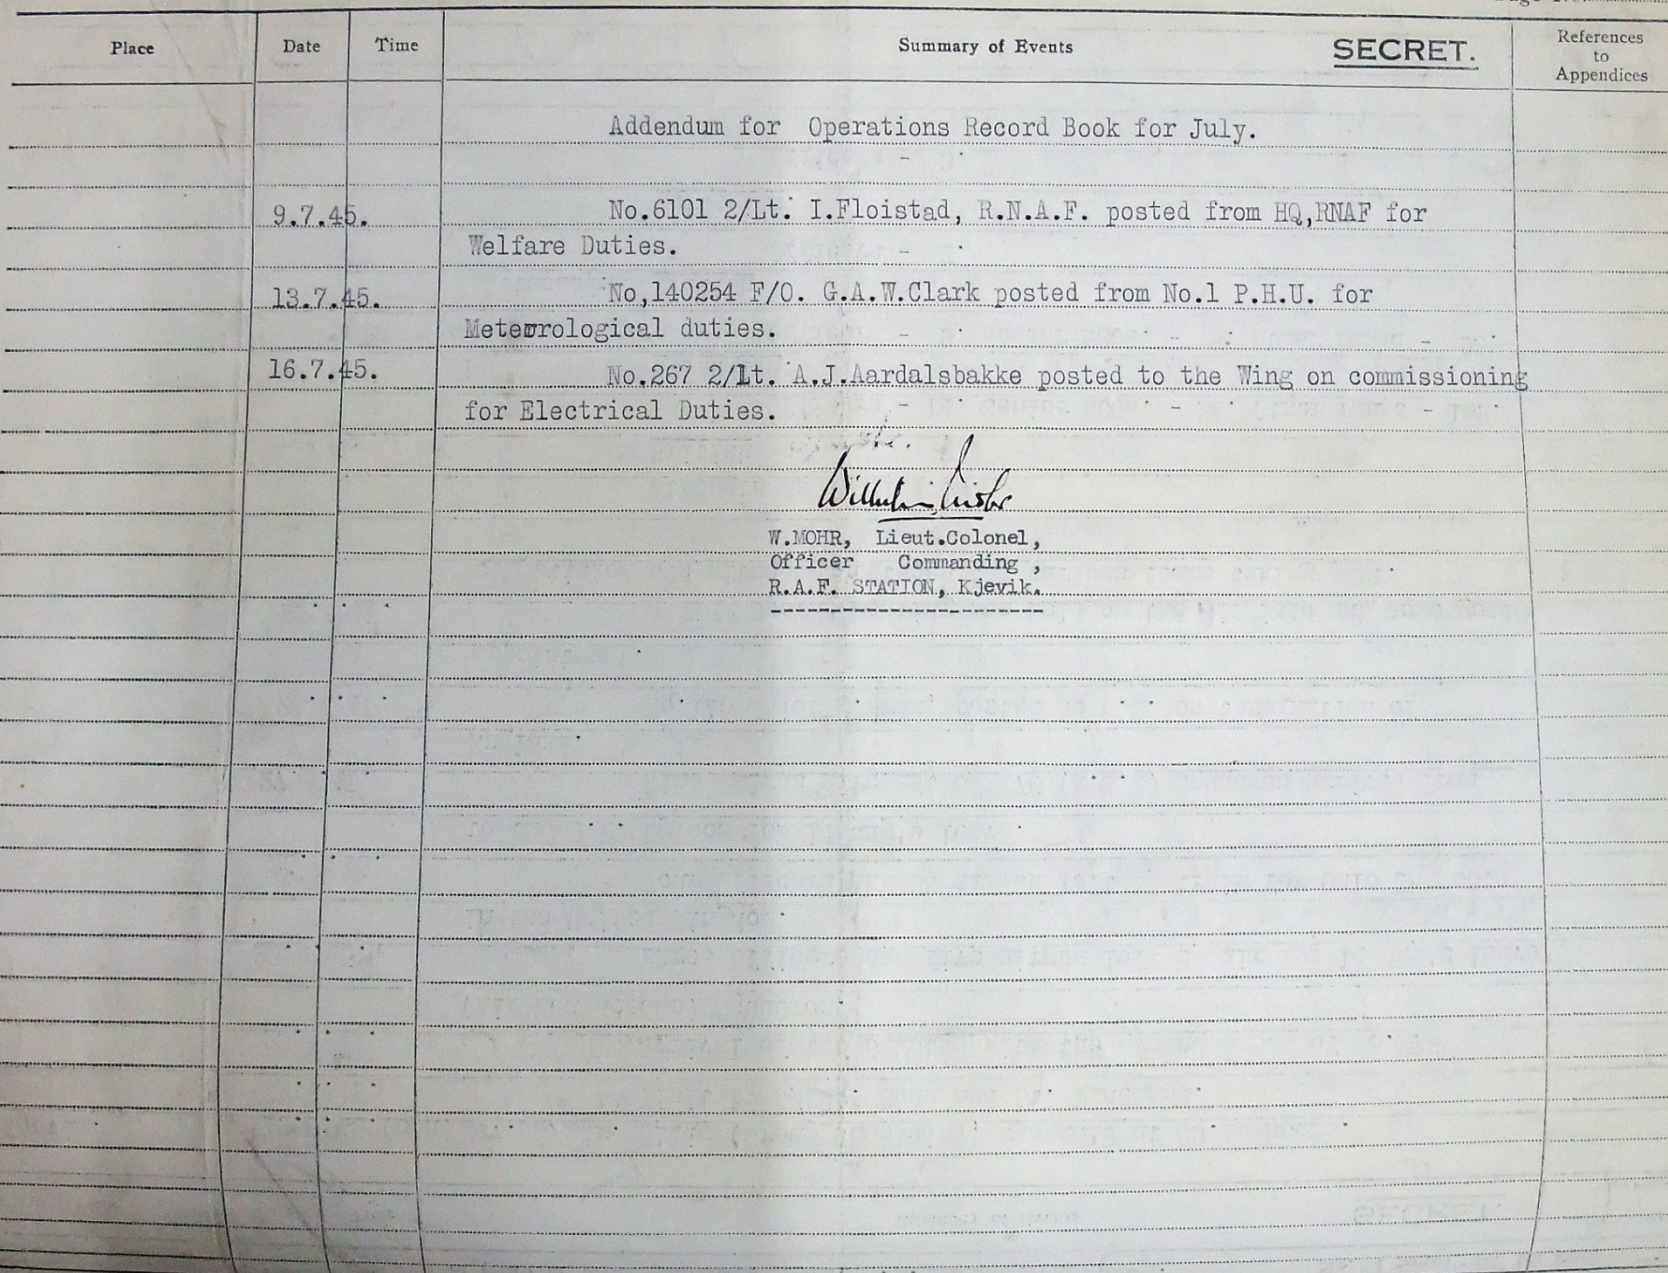 Place Date Time Summary of Events SECRET. References to Appendices
Addendum for Operations Record Book for July.
9.7.45. No.6101 2/Lt. I.Floistad, R.N.A.F. posted from HQ,RNAF for
Welfare Duties.
13.7.45. No,140254 F/O. G.A.W.Clark posted from No.1 P.H.U. for
Meteorological duties.
16.7.45. No.267 2/Lt. A.J.Aardalsbakke posted to the Wing on commissioning
for Electrical Duties.
W.MOHR, Lieut.Colonel,
Officer Commanding ,
R.A.F. STATION, Kjevik.